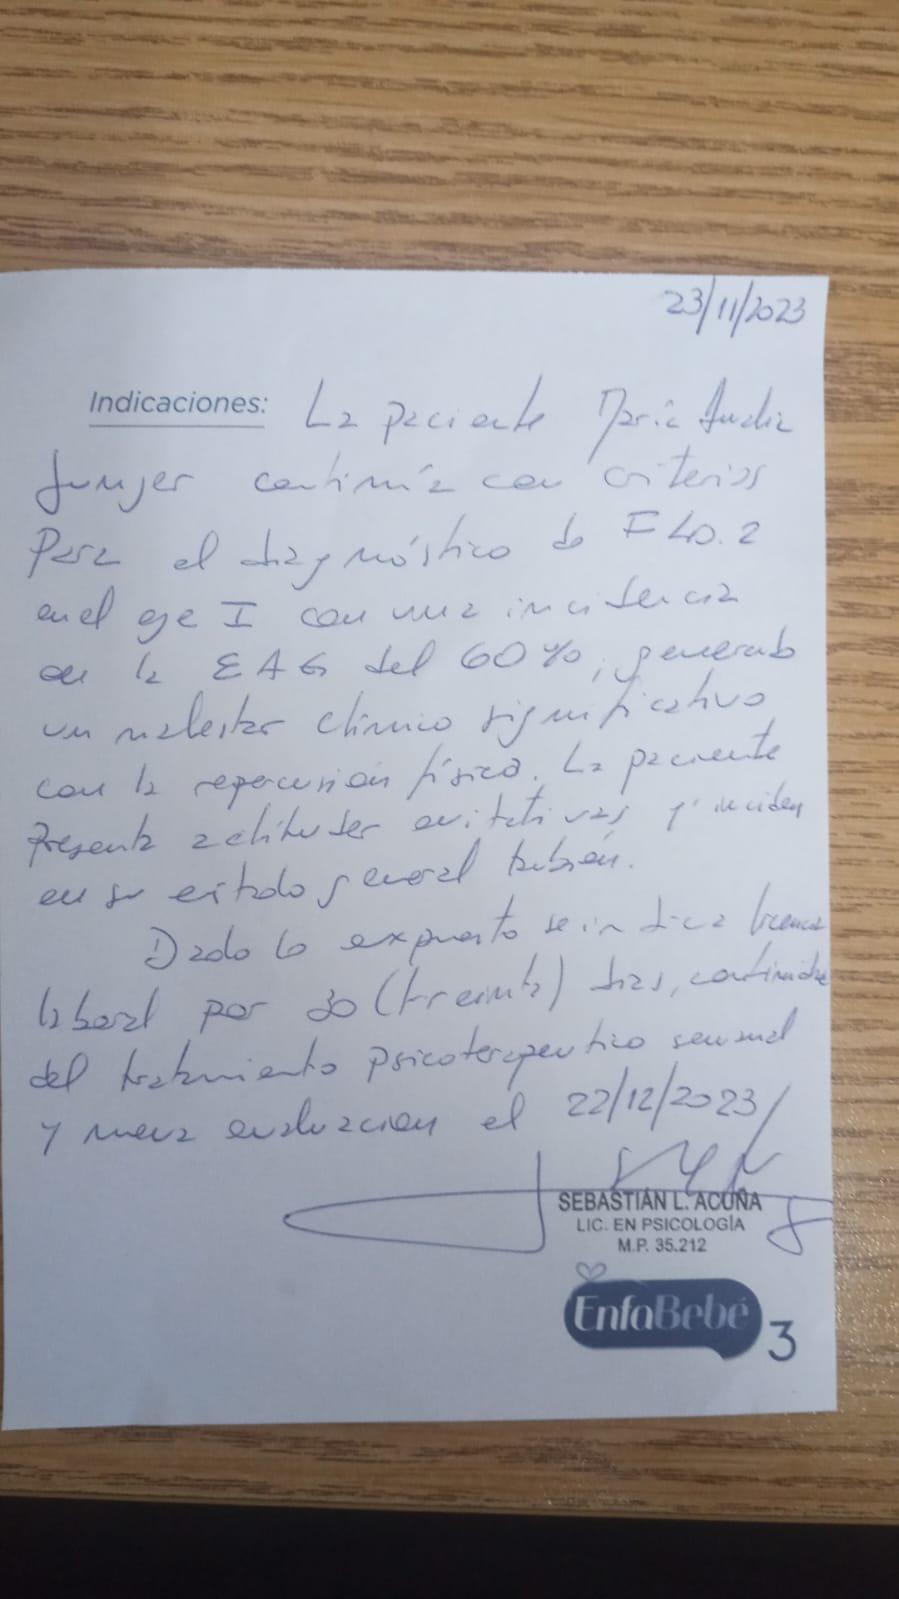 23/11/2023
Indicaciones: La paciente María
continúa con criterios
para el diagnóstico de F40.2
en el eje I con una incidencia
en la EAG del 60%, generando
un malestar clínico significativo
con la repercusión física. La paciente
presenta actitudes evitativas y inciden
en su estado general también.
Dado lo expuesto se indica licencia
laboral por 30 (treinta) días, continuidad
del tratamiento psicoterapeutico semanal
y nueva evaluación el 22/12/2023
SEBASTIÁN L. ACUÑA
LIC. EN PSICOLOGÍA
M.P. 35.212
EnfaBebé
3